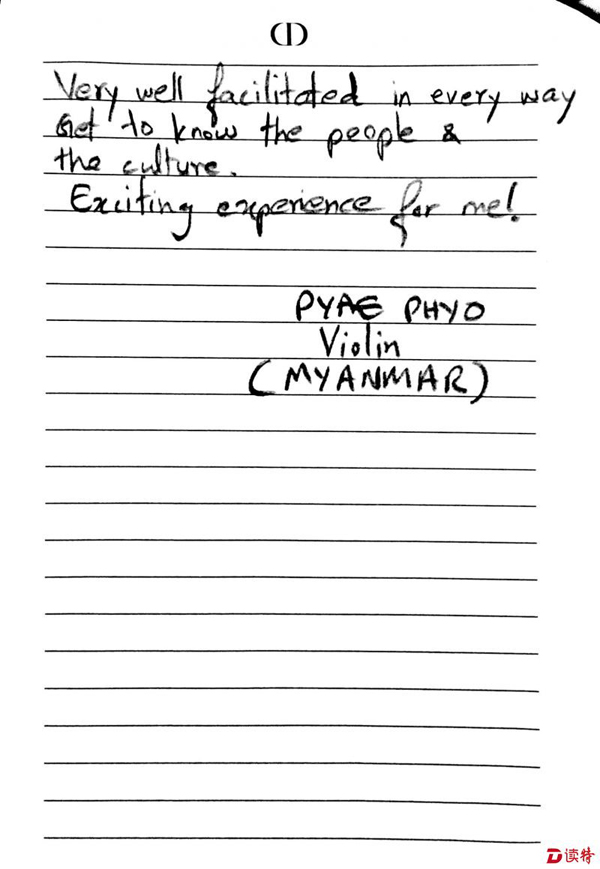 Very well facilitated in every way
Get to know the people &
the culture.
Exciting experience for me!
PYAE PHYO
Violin
(MYANMAR)
读特